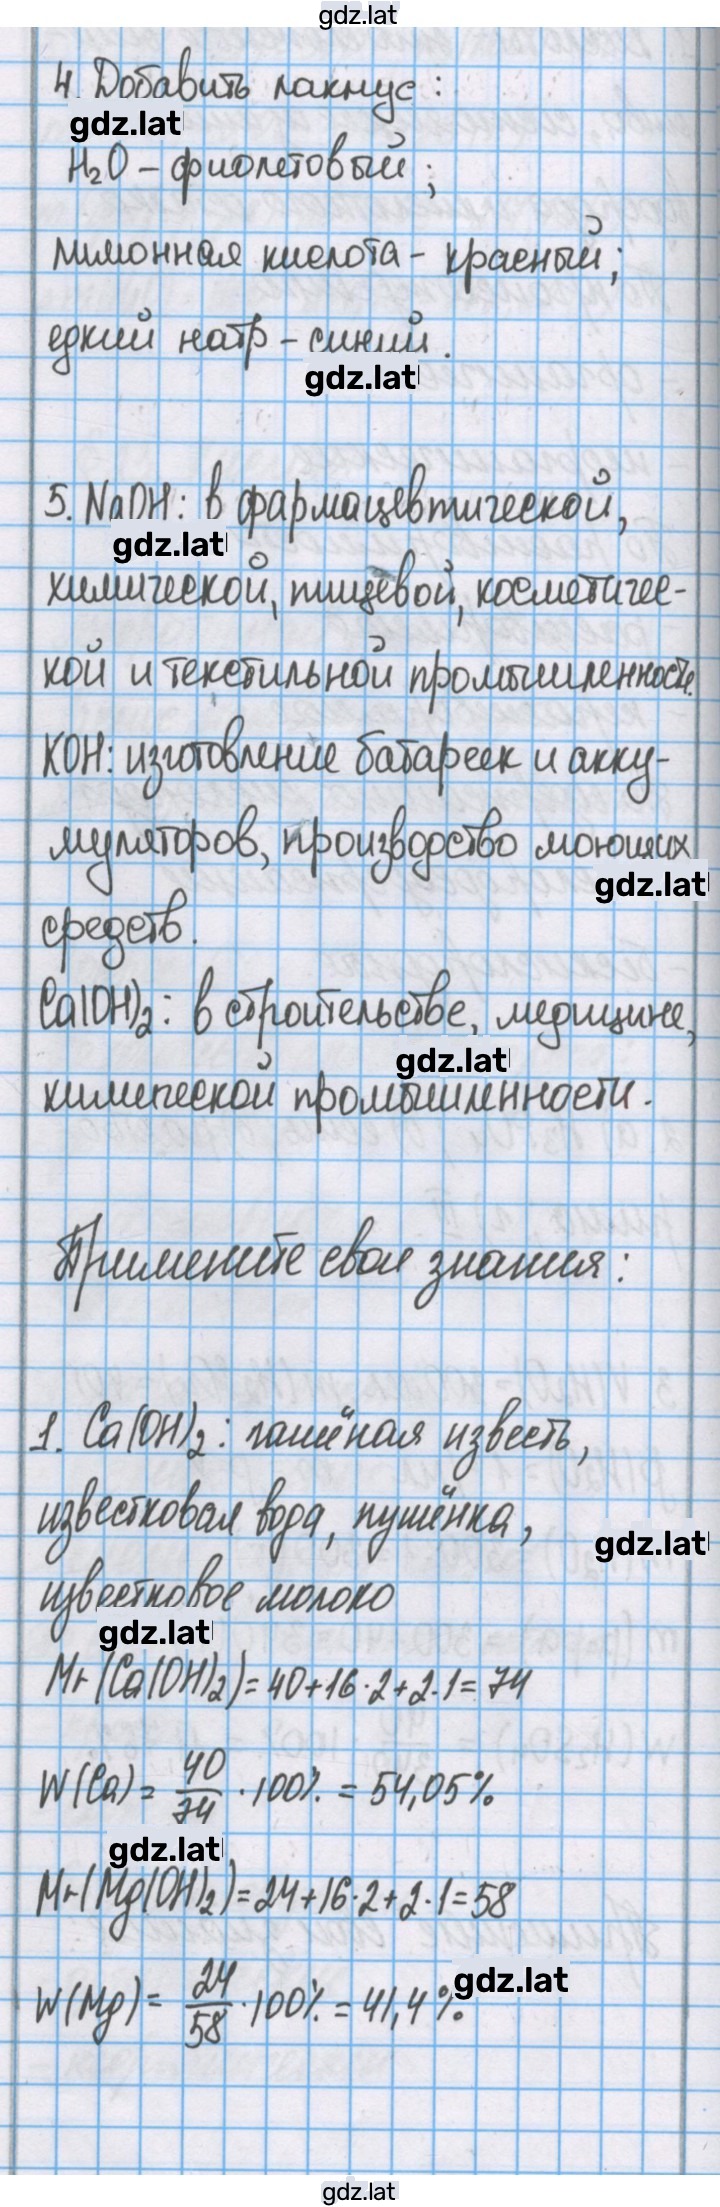 gdz.lat
4. Добавить лакмус:
gdz.lat
H₂O – фиолетовый;
лимонная кислота – красный;
едкий натр – синий.
gdz.lat
5. NaOH: в фармацевтической,
gdz.lat
химической, пищевой, косметичес-
кой и текстильной промышленности.
KOH: изготовление батареек и акку-
муляторов, производство моющих
gdz.lat
средств.
Ca(OH)₂: в строительстве, медицине,
gdz.lat
химической промышленности.
Примените свои знания:
1. Ca(OH)₂: гашёная известь,
известковая вода, пушёнка,
gdz.lat
известковое молоко
gdz.lat
Mr(Ca(OH)₂) = 40+16·2+2·1 = 74
W(Ca) = 40/74 · 100% = 54,05%
gdz.lat
Mr(Mg(OH)₂) = 24+16·2+2·1 = 58
gdz.lat
W(Mg) = 24/58 · 100% = 41,4%
gdz.lat